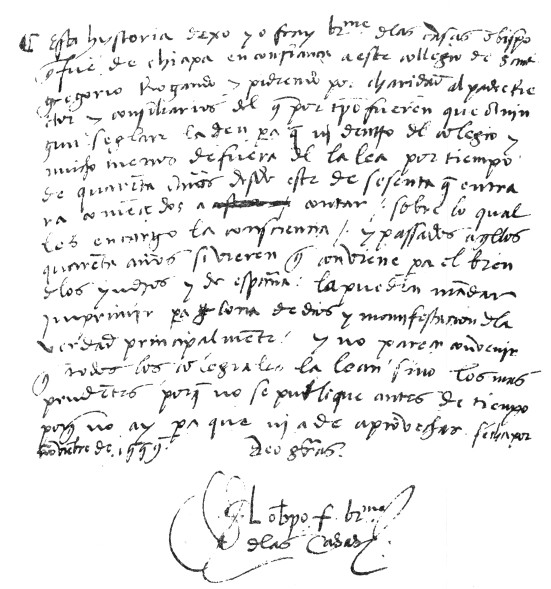 Esta hystoria dexo yo fray brme delas casas obispo
q̃ fue de chiapa en confiança a este collegio de Sant
gregorio Rogando y pidiendo por charidad al padre Re
ctor y consiliarios del q̃ por tpõ fueren que a nin
gun seglar la den pa q̃ ni dentro del colegio y
mucho menos de fuera del la lea por tiempo
de quarenta años desde este de sesenta q̃ entra
ra començados a contar: sobre lo qual
les encargo la consciencia: y passados aq̃llos
quarenta años si vieren q̃ conviene pa el bien
delos yndios y de españa: la pueden mandar
ymprimir pa gloria de dios y manifestacion dla
verdad principalmente: y no parece convenir
q̃ todos los colegiales la lean sino los mas
prudentes porq̃ no se publique antes de tiempo
porq̃ no ay pa que ni a de aprovechar. fecha por
noviembre de. 1559. Deo grãs.
El obpo f. brme
delas Casas